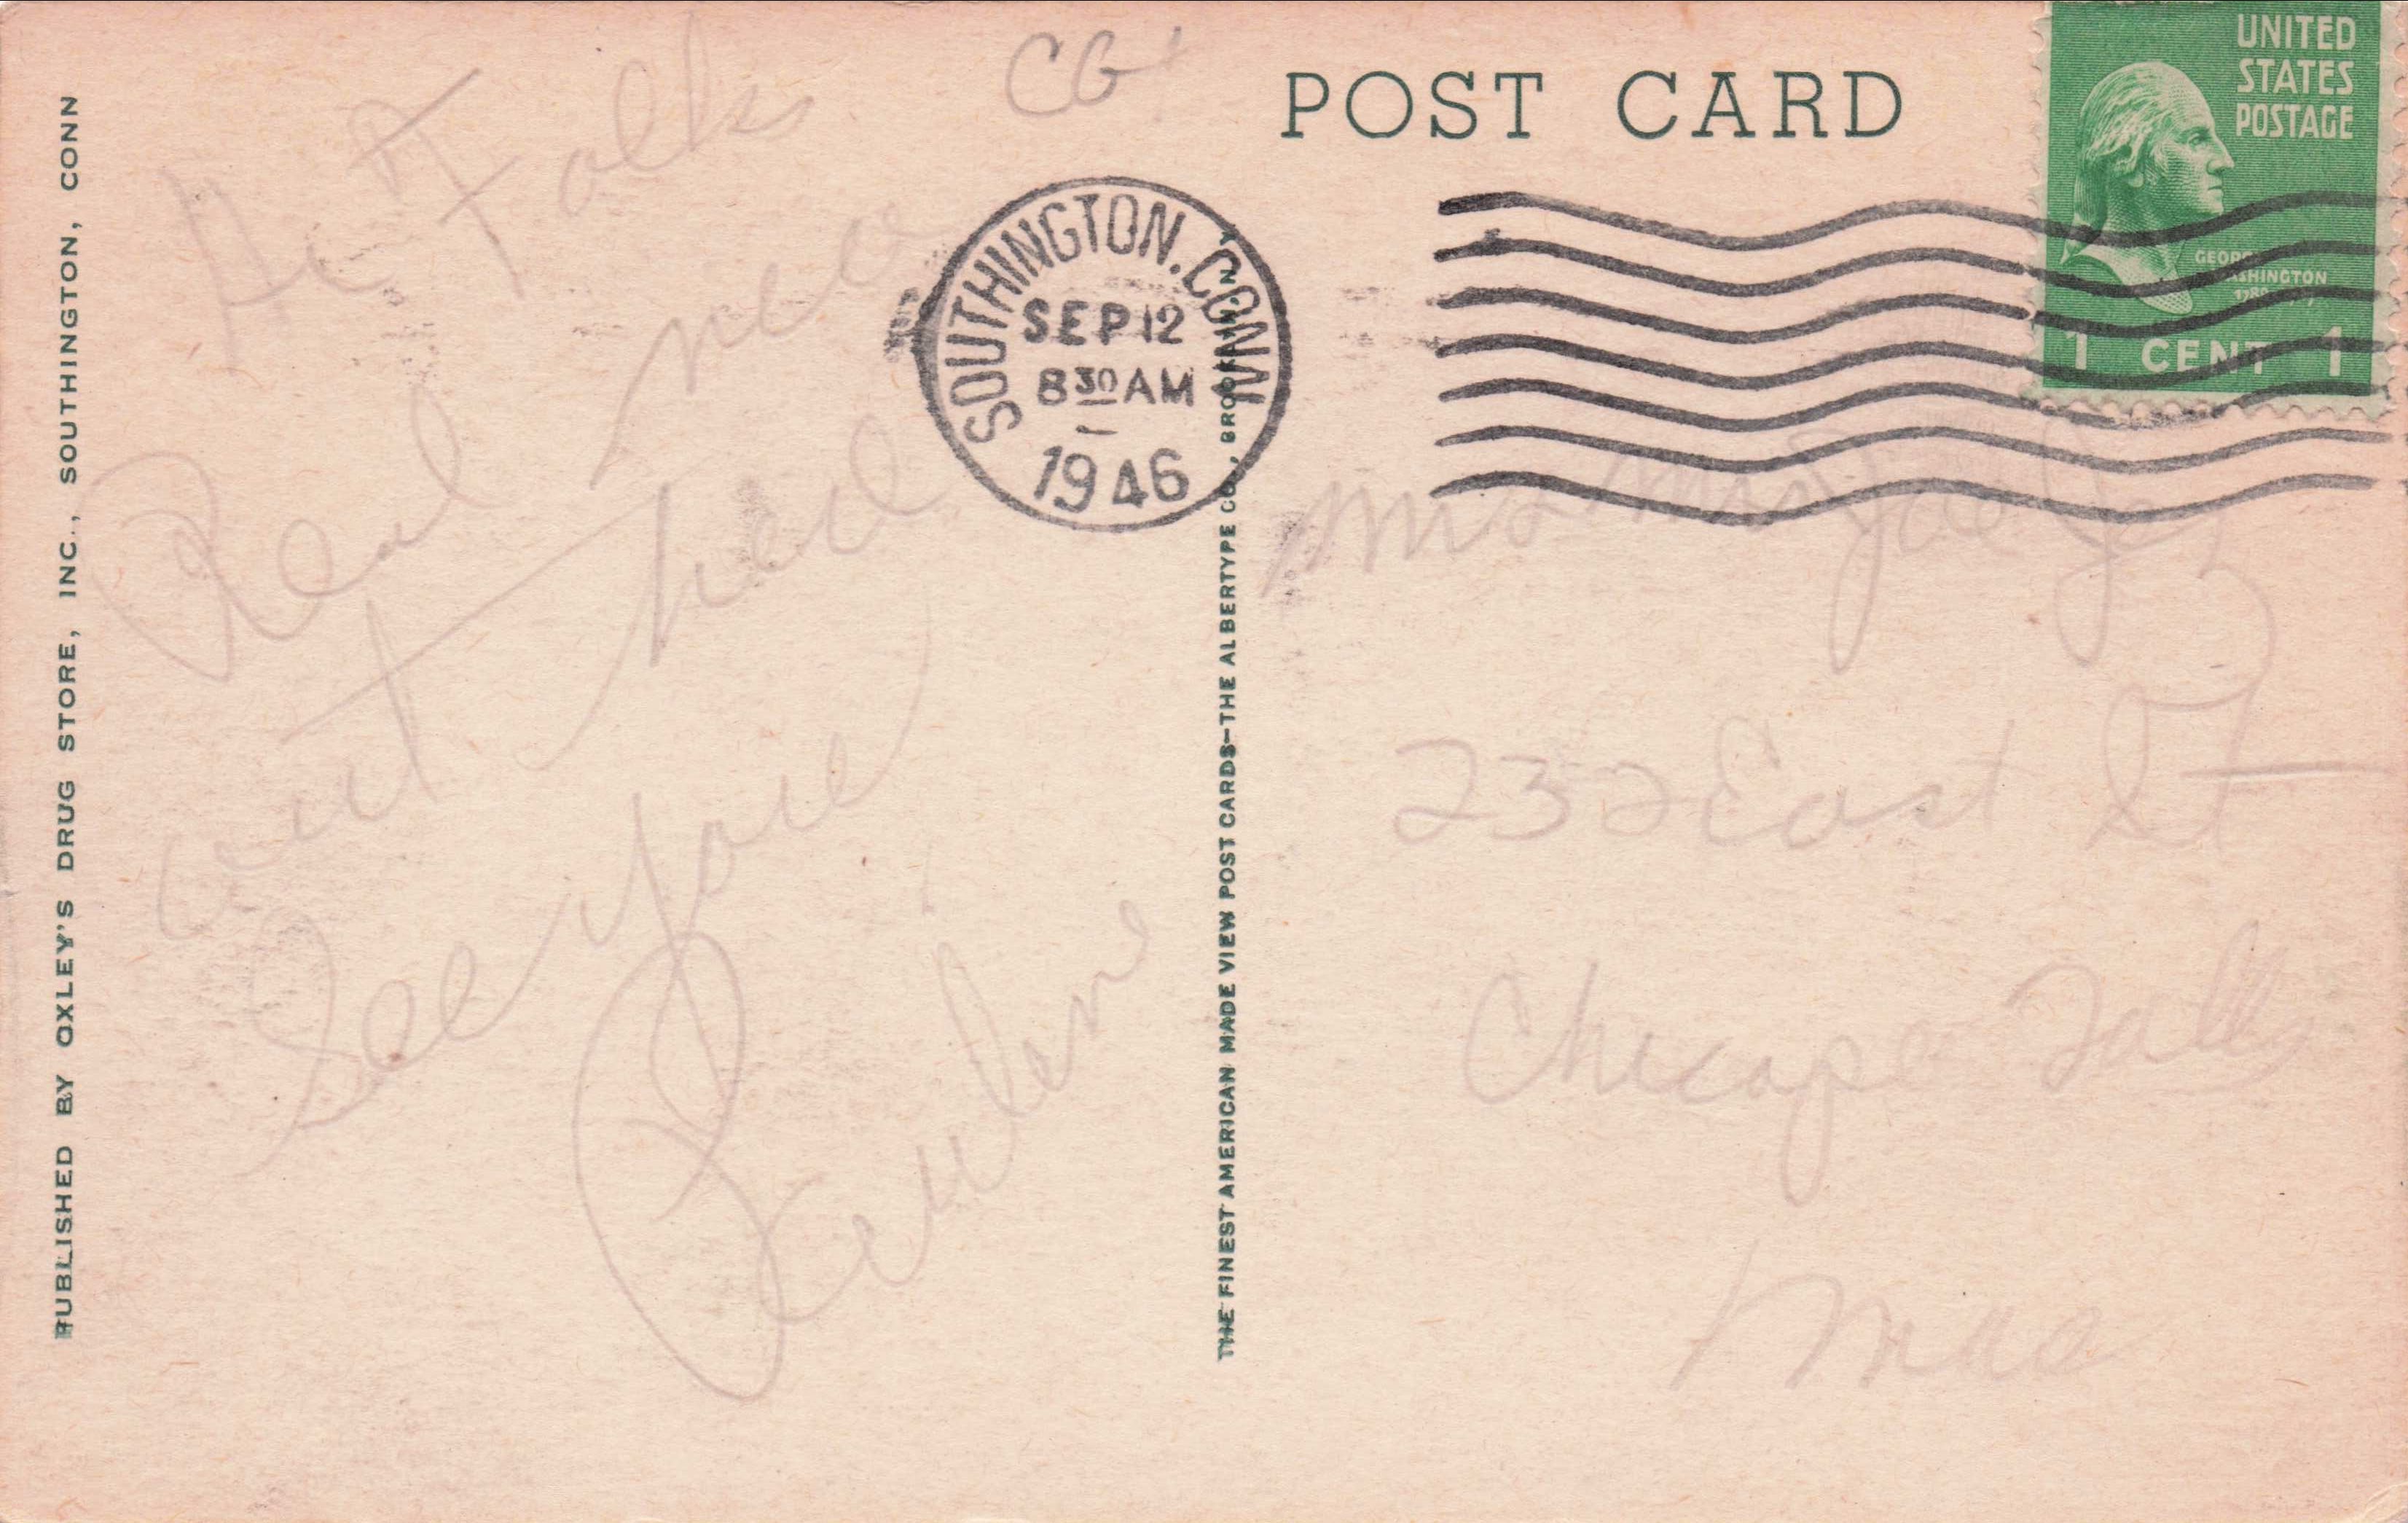 PUBLISHED BY OXLEY'S DRUG STORE, INC., SOUTHINGTON, CONN
CG
Hi Folks
Real nice
out here
See you
Pauline
SOUTHINGTON. CONN
SEP 12
8 30 AM
1946
THE FINEST AMERICAN MADE VIEW POST CARDS—THE ALBERTYPE CO., BROOKLYN, N.Y.
POST CARD
UNITED
STATES
POSTAGE
GEORGE
WASHINGTON
1 CENT 1
232 East St
Chicop Falls
Mas